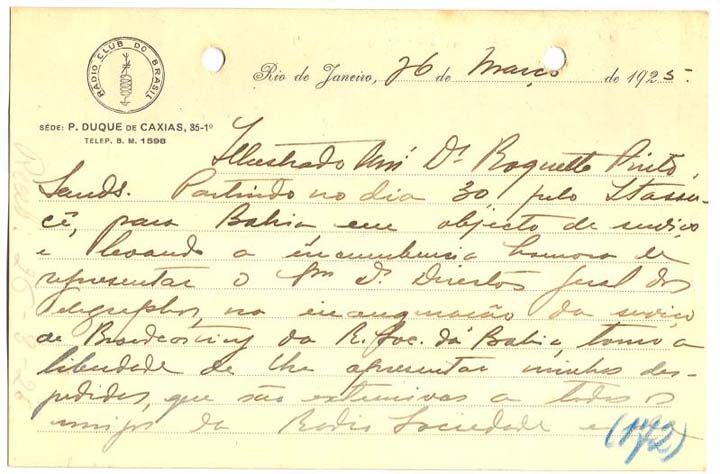 RADIO CLUB DO BRASIL
Rio de Janeiro, 26 de Março de 1925.
SÉDE: P. DUQUE DE CAXIAS, 35-1º
TELEP. B. M. 1598
Illustrado Dr. Roquette Pinto,
Sauds. Partindo no dia 30, pelo Itassu-
cê, para Bahia em objecto de serviço
e levando a incumbencia honrosa de
representar o Snr. Dr. Director Geral dos
Telegraphos, na inauguração do serviço
de Broadcasting da R. Soc. da Bahia, tomo a
liberdade de lhe apresentar minhas des-
pedidas, que são extensivas a todos os
amigos da Radio Sociedade e
(142)
26-3-25